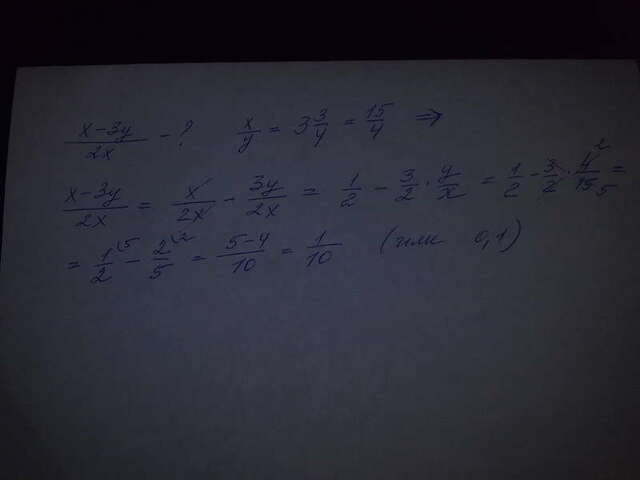 (x-3y)/(2x) - ? x/y = 3 3/4 = 15/4 ⇒
(x-3y)/(2x) = x/(2x) - 3y/(2x) = 1/2 - 3/2 · y/x = 1/2 - 3/2 · 4²/15₅ =
= 1/2⁽⁵ - 2/5⁽² = (5-4)/10 = 1/10 (или 0,1)